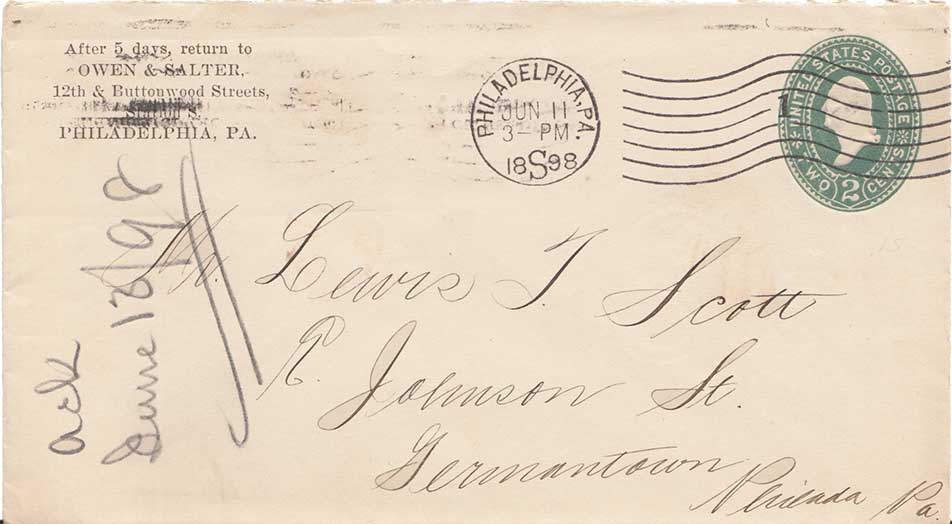 After 5 days, return to
OWEN & SALTER,
12th & Buttonwood Streets,
Station S.
PHILADELPHIA, PA.
PHILADELPHIA, PA.
JUN 11
3- PM
1898
S
1
UNITED STATES POSTAGE
TWO 2 CENTS
Mr. Lewis T. Scott
R. Johnson St.
Germantown
Philada Pa.
ack
June 13/98